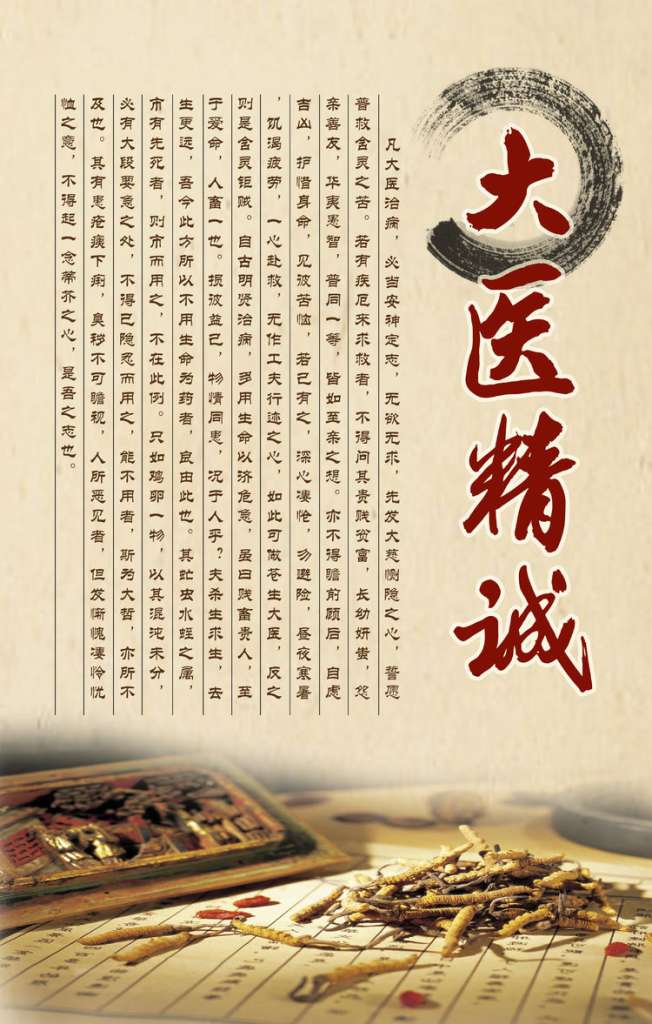 大医精诚
凡大医治病，必当安神定志，无欲无求，先发大慈恻隐之心，誓愿
普救含灵之苦。若有疾厄来求救者，不得问其贵贱贫富，长幼妍蚩，怨
亲善友，华夷愚智，普同一等，皆如至亲之想。亦不得瞻前顾后，自虑
吉凶，护惜身命，见彼苦恼，若己有之，深心凄怆，勿避险，昼夜寒暑
，饥渴疲劳，一心赴救，无作工夫行迹之心，如此可做苍生大医，反之
则是含灵钜贼。自古明贤治病，多用生命以济危急，虽曰贱畜贵人，至
于爱命，人畜一也。损彼益己，物情同患，况于人乎？夫杀生求生，去
生更远，吾今此方所以不用生命为药者，良由此也。其虻虫水蛭之属，
市有先死者，则市而用之，不在此例。只如鸡卵一物，以其混沌未分，
必有大段要急之处，不得已隐忍而用之，能不用者，斯为大哲，亦所不
及也。其有患疮痍下痢，臭秽不可瞻视，人所恶见者，但发惭愧凄怜忧
恤之意，不得起一念蒂芥之心，是吾之志也。